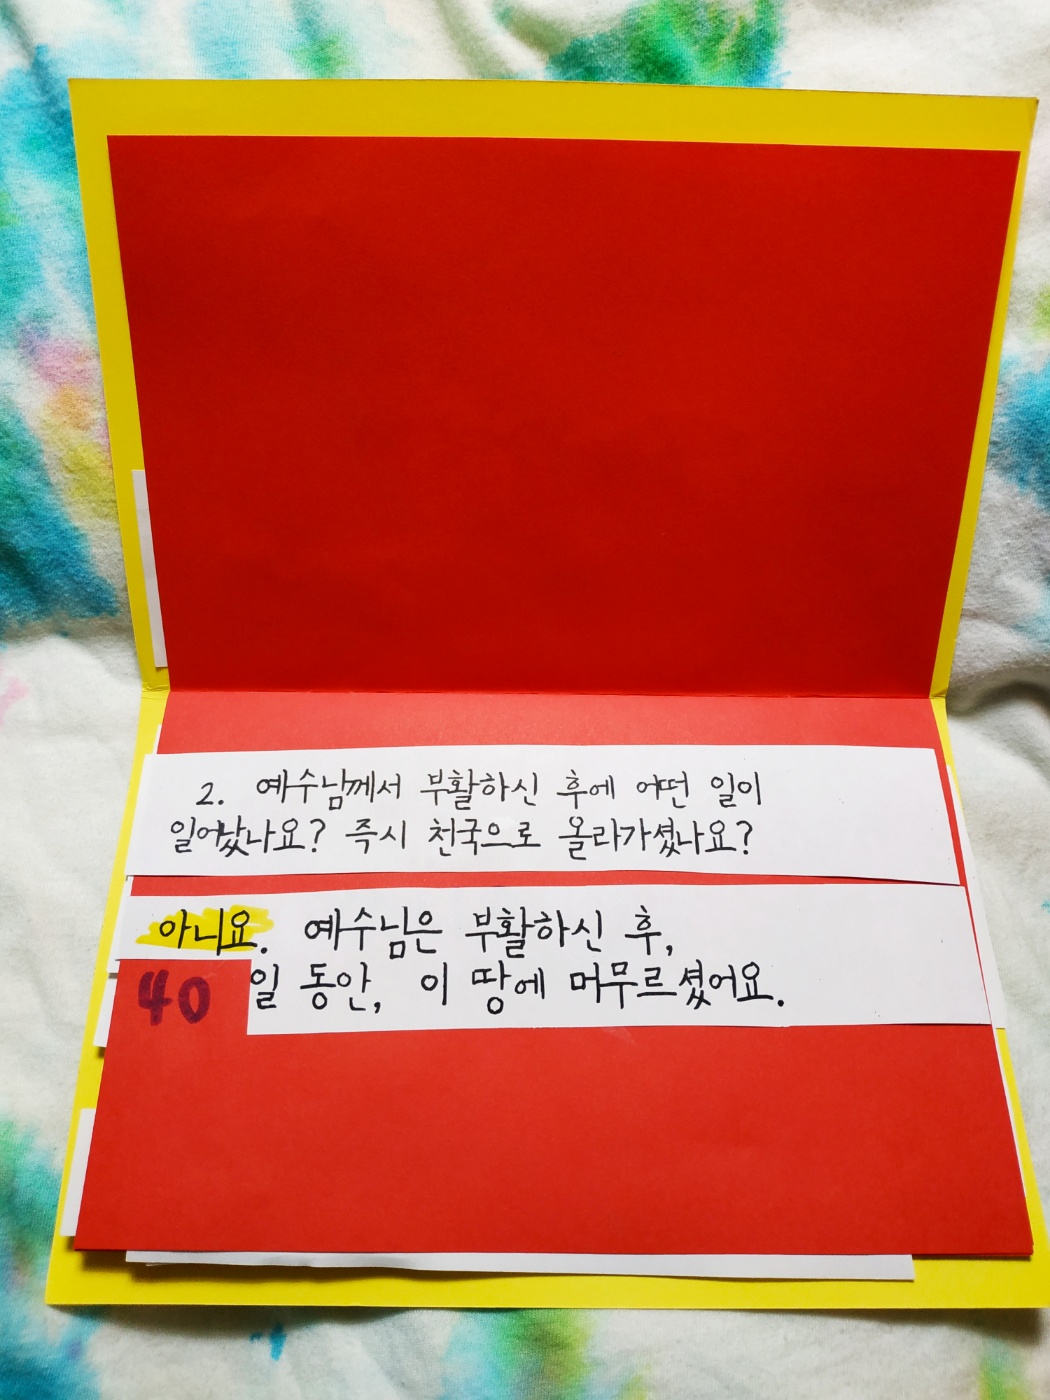 2. 예수님께서 부활하신 후에 어떤 일이
일어났나요? 즉시 천국으로 올라가셨나요?
아니요. 예수님은 부활하신 후,
40일 동안, 이 땅에 머무르셨어요.